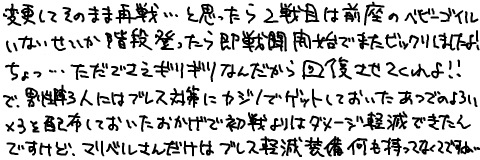 変更してそのまま再戦…と思ったら2戦目は前座のベビーゴイル
いないせいか階段登ったら即戦闘開始でまたビックリしましたよ!
ちょっ…ただでさえギリギリなんだから回復させてくれよ!!
で、男性陣3人にはブレス対策にカジノでゲットしておいたあつでのよろい
×3を配布しておいたおかげで初戦よりはダメージ軽減できたん
ですけど、マリベルさんだけはブレス軽減装備何も持ってなくてですね…